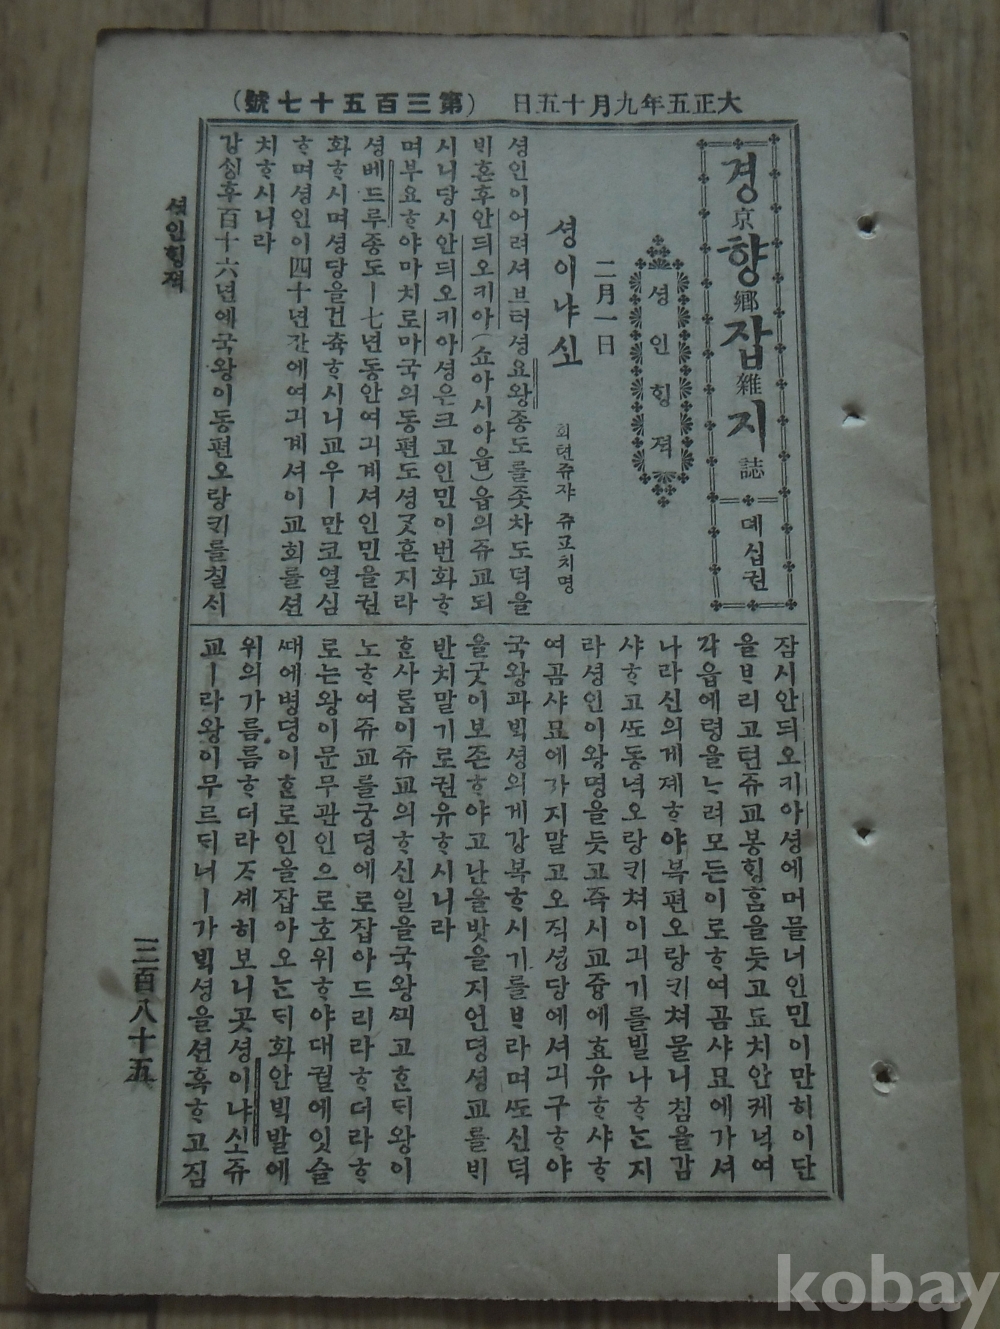 大正五年九月十五日
(第三百五十七號)
경京향鄕잡雜지誌
뎨십권
셩인ᄒᆡᆼ젹
二月一日
셩이냐시오
회텬쥬쟈 쥬교치명
셩인이어려셔브터셩요왕종도를좃차도덕을
ᄇᆡ혼후안듸오키아(쇼아시아읍)읍의쥬교되
시니당시안듸오키아셩은크고인민이번화ᄒᆞ
며부요ᄒᆞ야마치로마국의동편도셩ᄀᆞᆺ흔지라
셩베드루종도ㅣ七년동안여긔계셔인민을권
화ᄒᆞ시며셩당을건츅ᄒᆞ시니교우ㅣ만코열심
ᄒᆞ며셩인이四十년간에여긔계셔이교회를션
치ᄒᆞ시니라
강ᄉᆡᆼ후百十六년에국왕이동편오랑키를칠ᄉᆡ
잠시안듸오키아셩에머믈너인민이만히이단
을ᄇᆞ리고텬쥬교봉ᄒᆡᆼ홈을듯고됴치안케넉여
각읍에령을ᄂᆞ려모든이로ᄒᆞ여곰샤묘에가셔
나라신의게졔ᄒᆞ야북편오랑키쳐물니침을감
샤ᄒᆞ고ᄯᅩ동녁오랑키쳐이긔기를빌나ᄒᆞᄂᆞᆫ지
라셩인이왕명을듯고즉시교즁에효유ᄒᆞ샤ᄒᆞ
여곰샤묘에가지말고오직셩당에셔긔구ᄒᆞ야
국왕과ᄇᆡᆨ셩의게강복ᄒᆞ시기를ᄇᆞ라며ᄯᅩ신덕
을굿이보존ᄒᆞ야고난을밧을지언뎡셩교를ᄇᆡ
반치말기로권유ᄒᆞ시니라
ᄒᆞᆫ사ᄅᆞᆷ이쥬교의ᄒᆞ신일을국왕ᄭᅴ고ᄒᆞᆫᄃᆡ왕이
노ᄒᆞ여쥬교를궁뎡에로잡아드리라ᄒᆞ더라ᄒᆞ
로는왕이문무관인으로호위ᄒᆞ야대궐에잇슬
ᄯᅢ에병뎡이ᄒᆞᆫ로인을잡아오ᄂᆞᆫᄃᆡ화안ᄇᆡᆨ발에
위의가름름ᄒᆞ더라ᄌᆞ셰히보니곳셩이냐시오쥬
교ㅣ라왕이무르ᄃᆡ너ㅣ가ᄇᆡᆨ셩을션혹ᄒᆞ고짐
셩인ᄒᆡᆼ젹
三百八十五
kobay